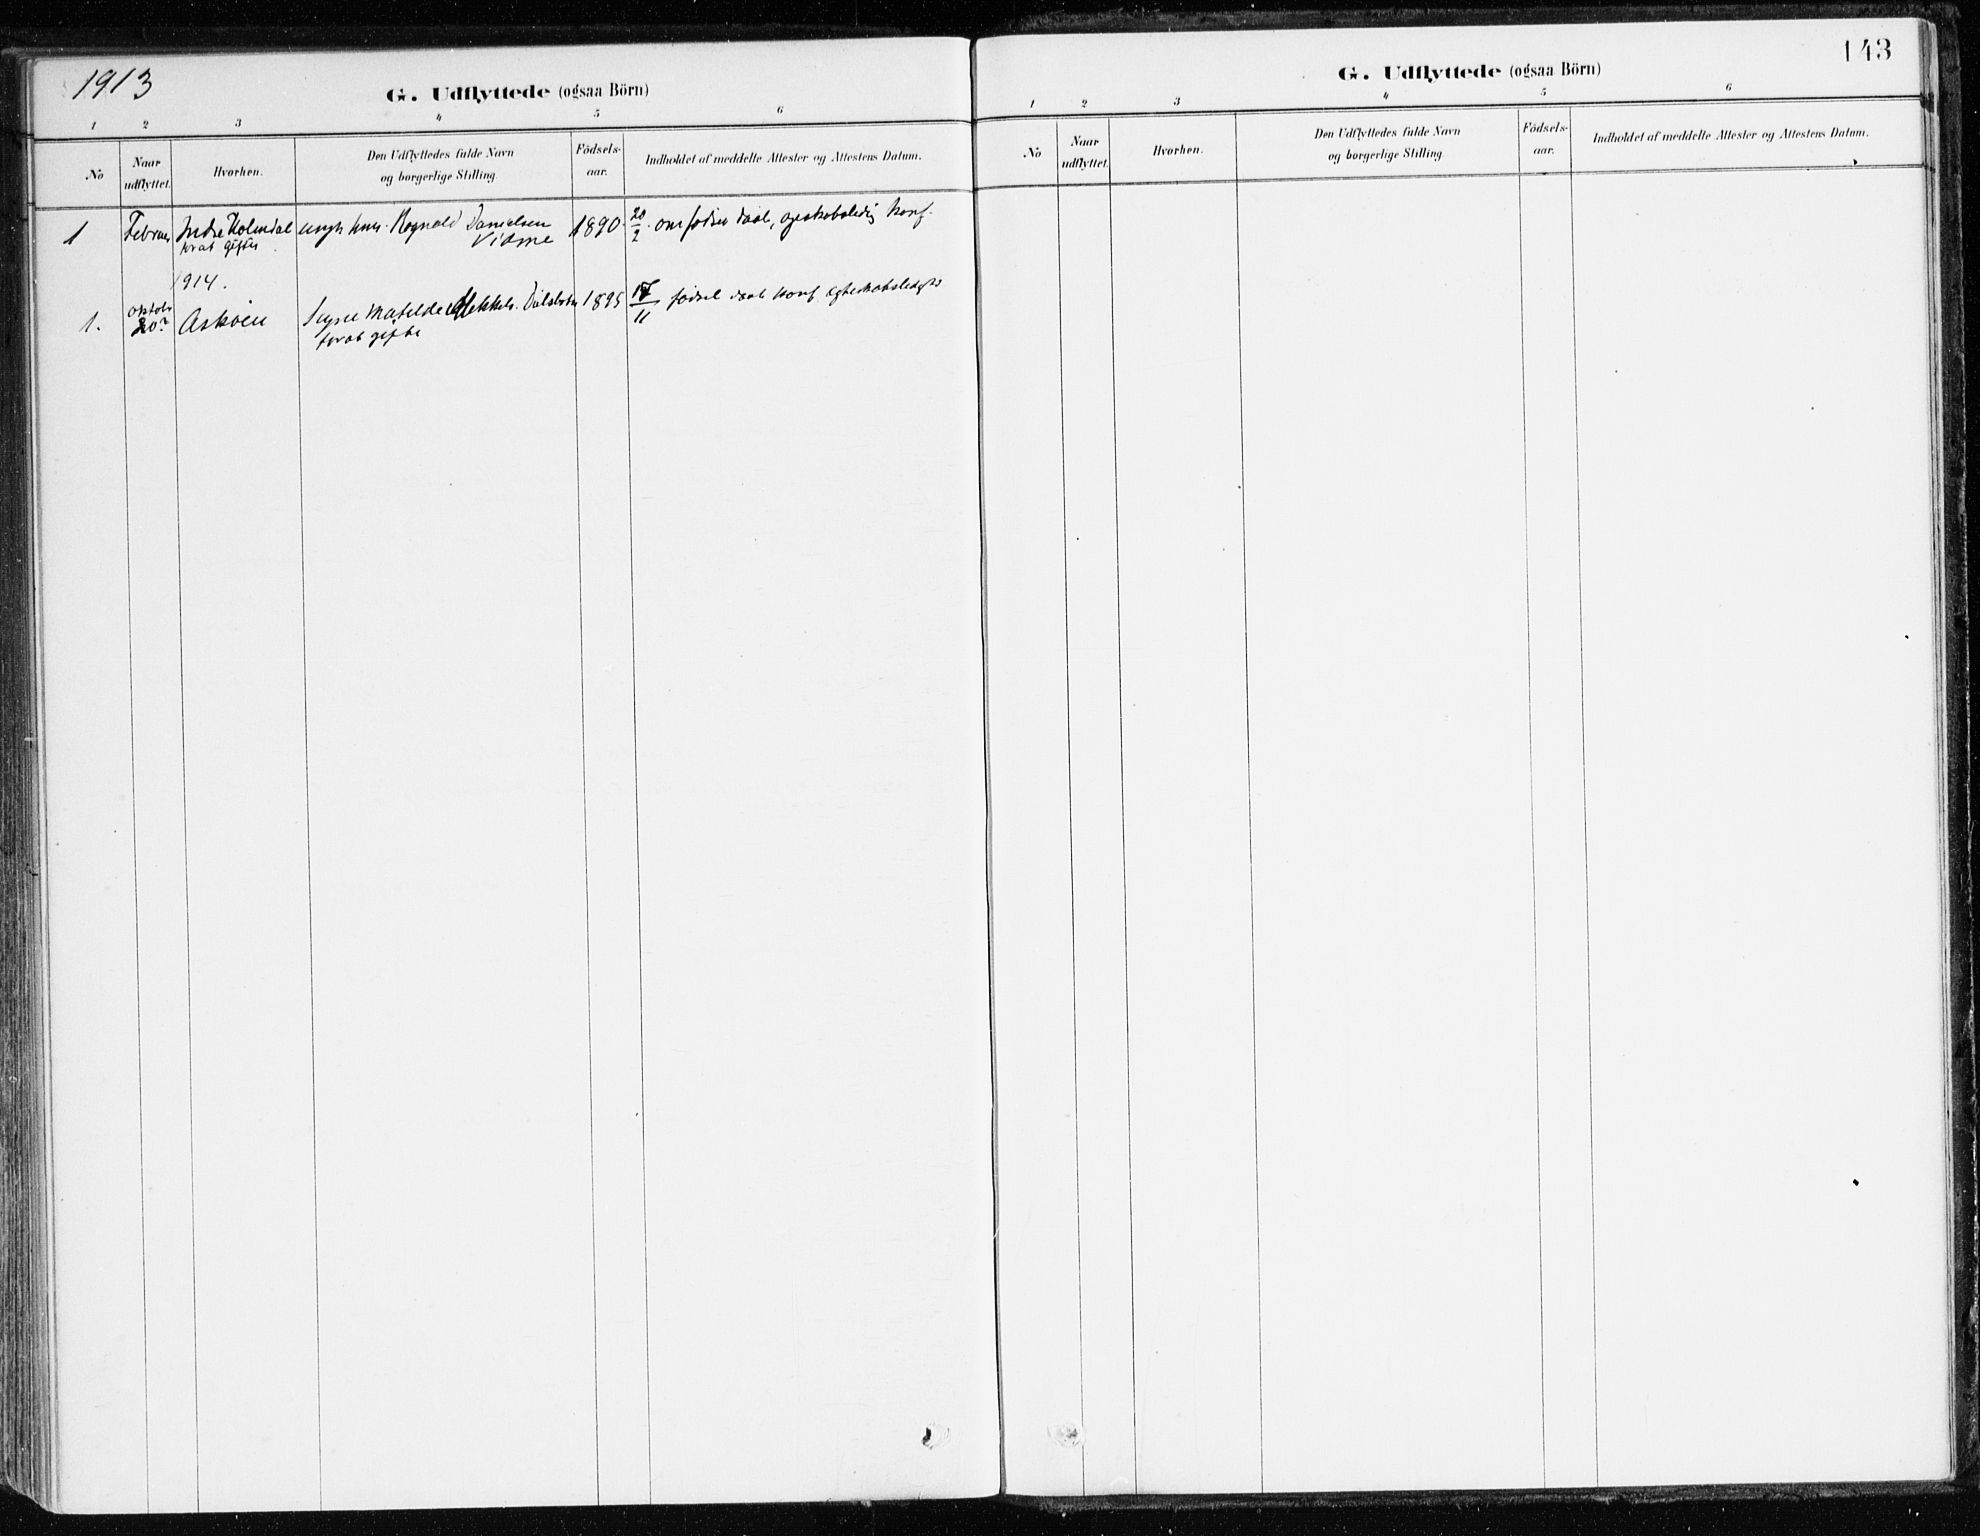 1913
G. Udflyttede (ogsaa Börn)
1 2 3 4 5 6
No
Naar udflyttet.
Hvorhen.
Den Udflyttedes fulde Navn og borgerlige Stilling.
Födsels-aar.
Indholdet af meddelte Attester og Attestens Datum.
1 Februar Indre Holmedal ungk Rognald Danielsen 1890 20/2 om fødsel daab, Konf.
forat giftes
1914.
1. oktobr 20 Askøen Matilde 1895 /11 fødsel daab konf
forat gifte
143
G. Udflyttede (ogsaa Börn)
1 2 3 4 5 6
No
Naar udflyttet.
Hvorhen.
Den Udflyttedes fulde Navn og borgerlige Stilling.
Födsels-aar.
Indholdet af meddelte Attester og Attestens Datum.